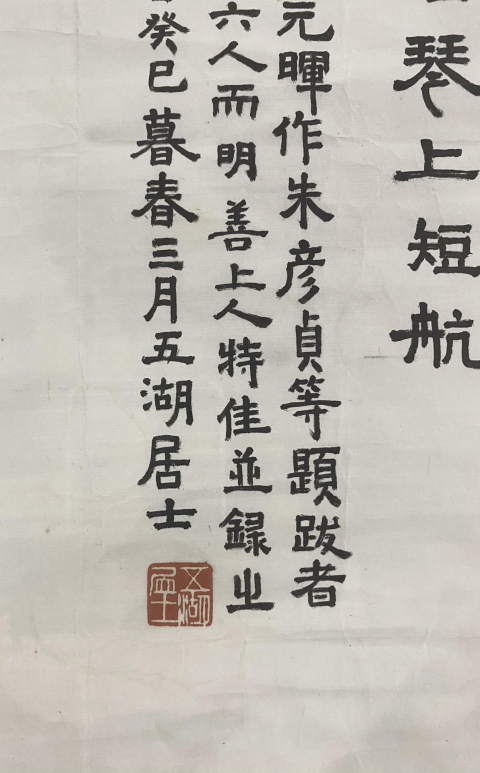 琴上短航
元暉作朱彦貞等題跋者
六人而明善上人特佳並錄之
癸巳暮春三月五湖居士
五湖居士